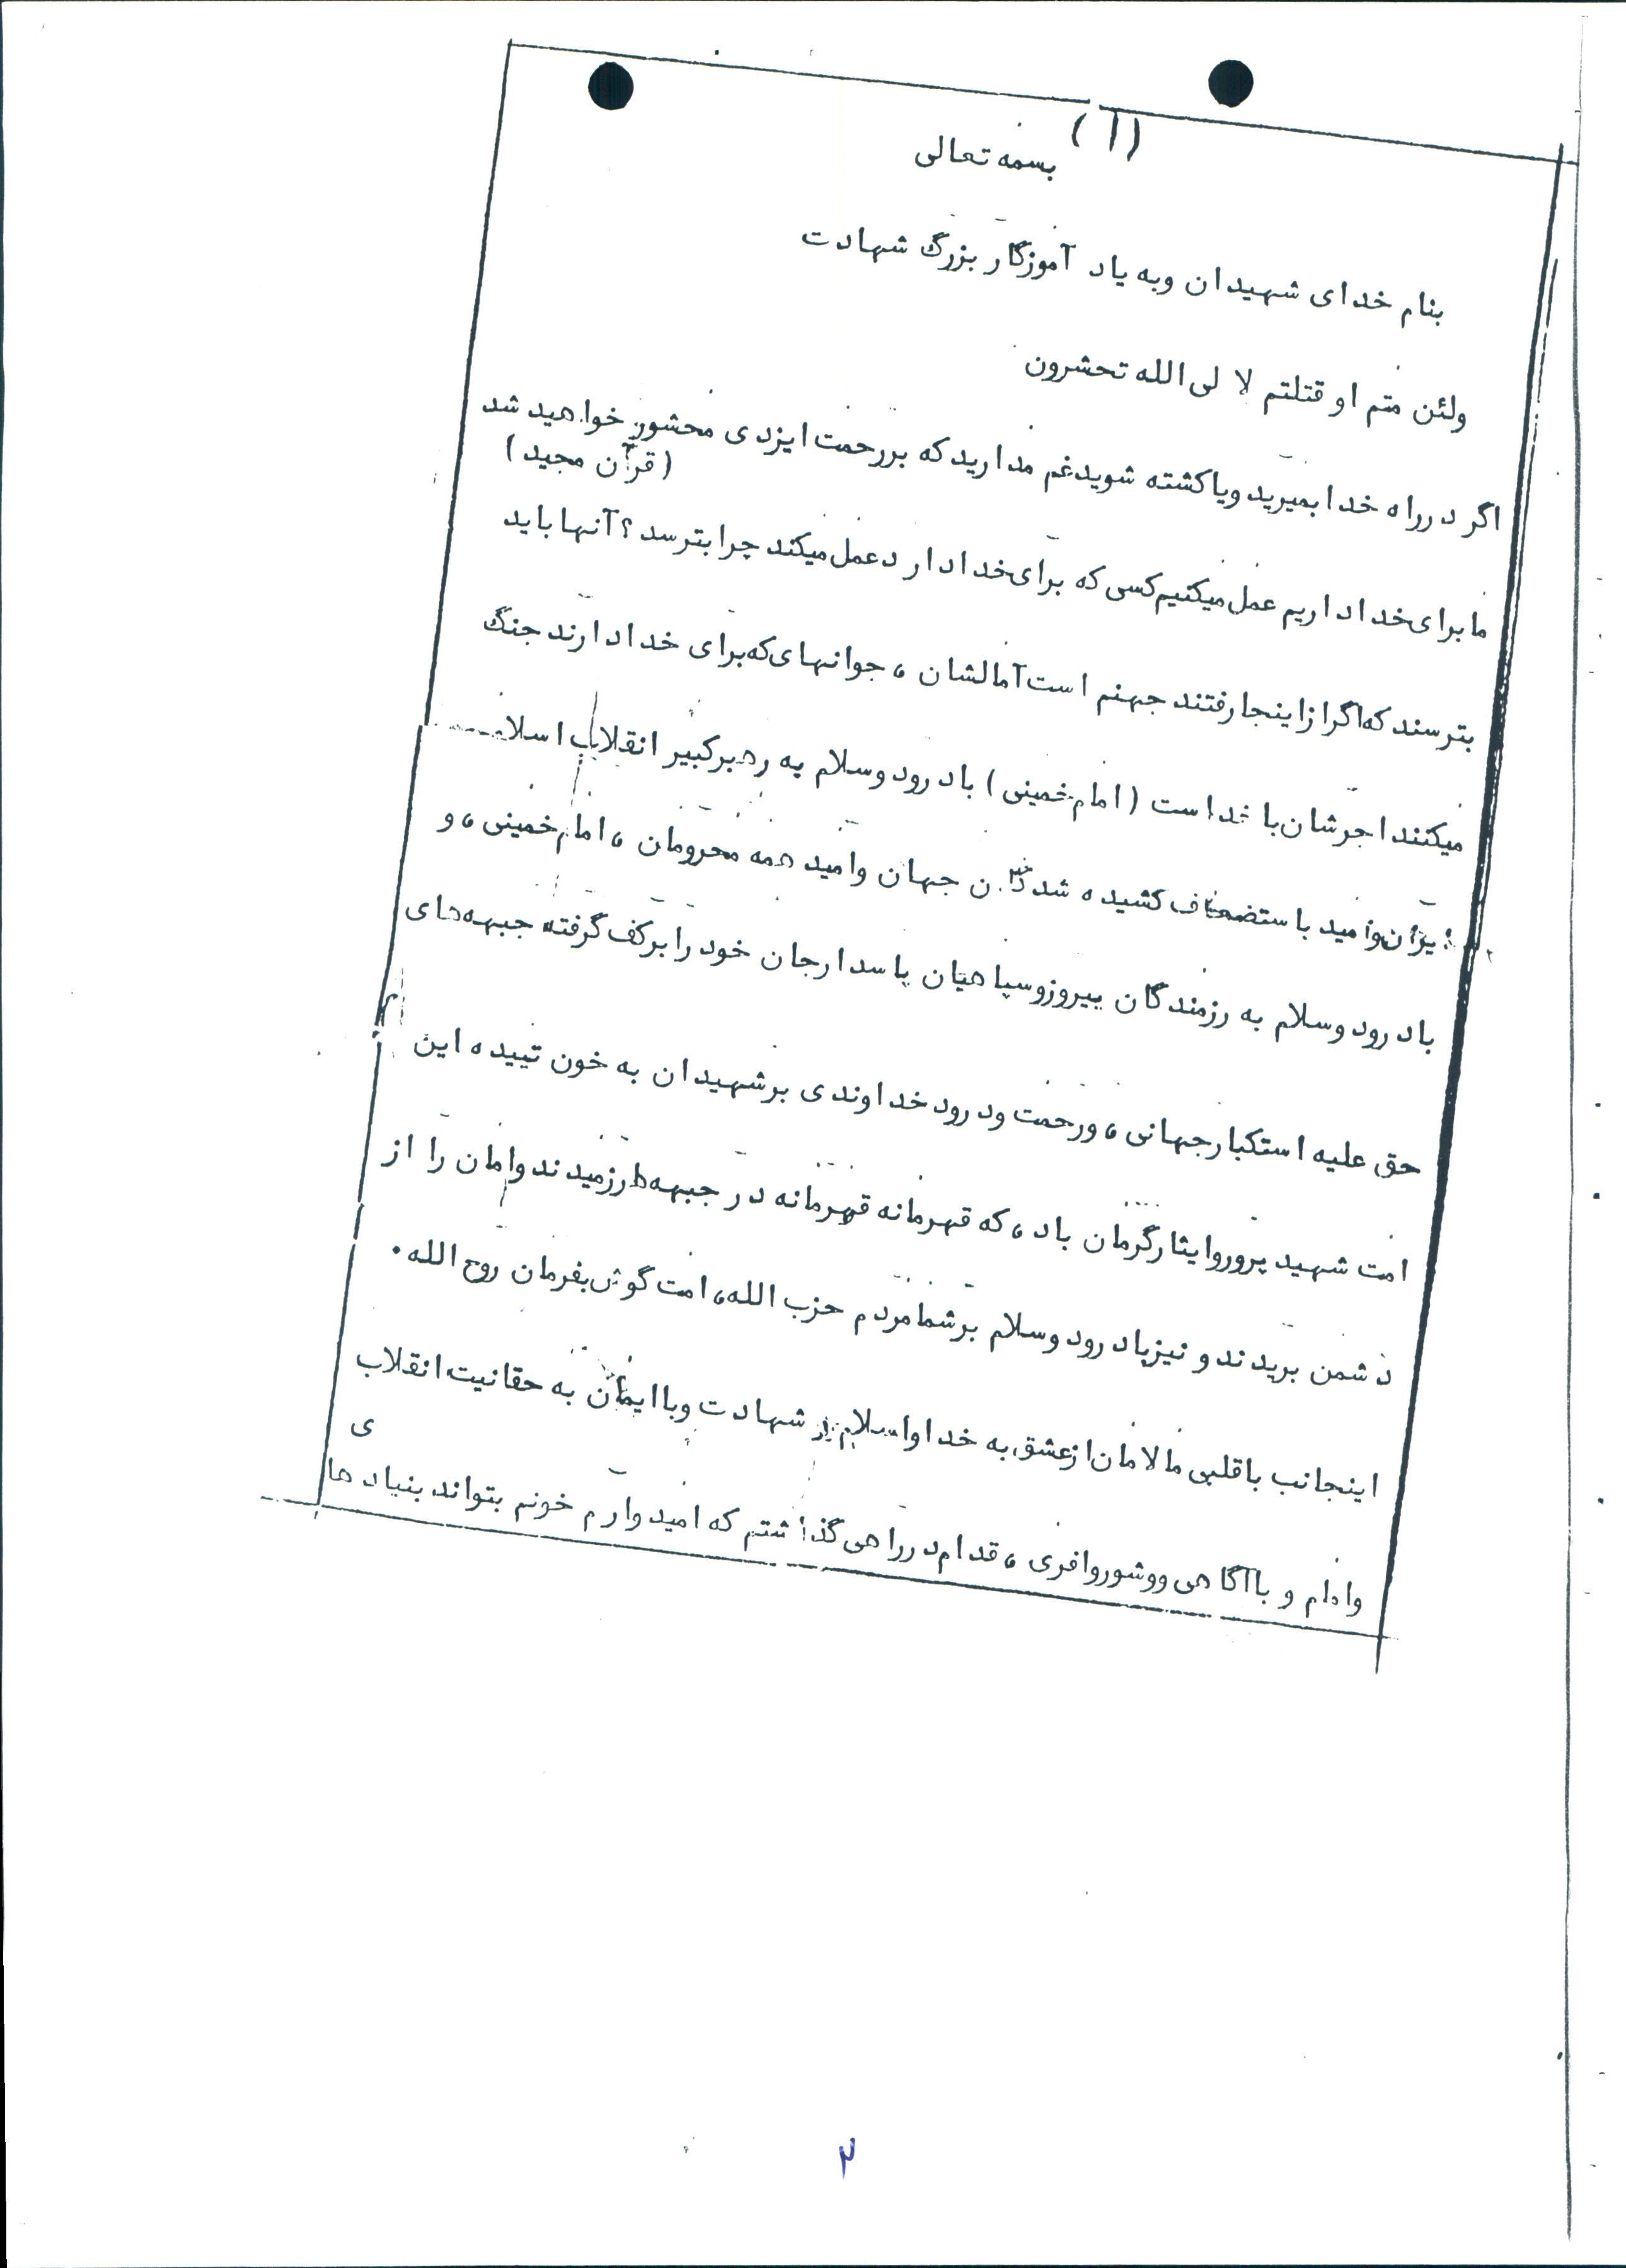 (۱)
بسمه تعالی
بنام خدای شهیدان وبه یاد آموزگار بزرگ شهادت
ولئن متم او قتلتم لا لی الله تحشرون
اگر درراه خدا بمیرید ویا کشته شوید غم مدارید که بررحمت ایزدی محشور خواهید شد
(قرآن مجید)
ما برای خدا داریم عمل میکنیم کسی که برای خدا دارد عمل میکند چرا بترسد ؟ آنها باید
بترسند که اگر از اینجا رفتند جهنم است آمالشان ، جوانهای که برای خدا دارند جنگ
میکنند اجرشان با خداست (امام خمینی) بادرود وسلام به رهبر کبیر انقلاب اسلا
ایران و امید باستضعاف کشیده شدگان جهان وامید همه محرومان ، امام خمینی ، و
بادرود وسلام به رزمندگان پیروز وسپاهیان پاسدار جان خود را برکف گرفته جبهه های
حق علیه استکبار جهانی ، ورحمت ودرود خداوندی بر شهیدان به خون تپیده این
امت شهید پرور وایثارگرمان باد ، که قهرمانه قهرمانه در جبهه ها رزمیدند وامان را از
دشمن بریدند و نیز بادرود وسلام بر شما مردم حزب الله ، امت گوش بفرمان روح الله .
اینجانب با قلبی مالامان از عشق به خدا واسلام شهادت وبا ایمان به حقانیت انقلاب
ی
وامام و با آگاهی ووشور وافری ، قدام درراهی گذاشتم که امیدوارم خونم بتواند بنیادها
۲